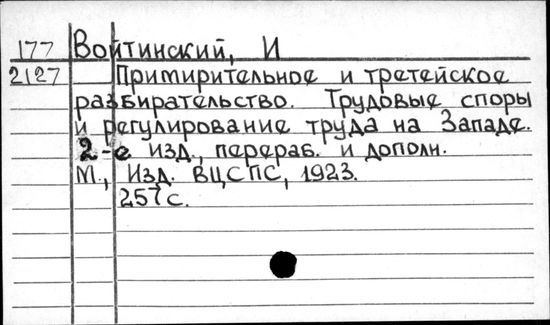 177 Войтинский, И
2127 Примирительное и третейское
разбирательство. Трудовые споры
и регулирование труда на Западе.
2-е изд., перераб. и дополн.
М., Изд. ВЦСПС, 1923.
257с.